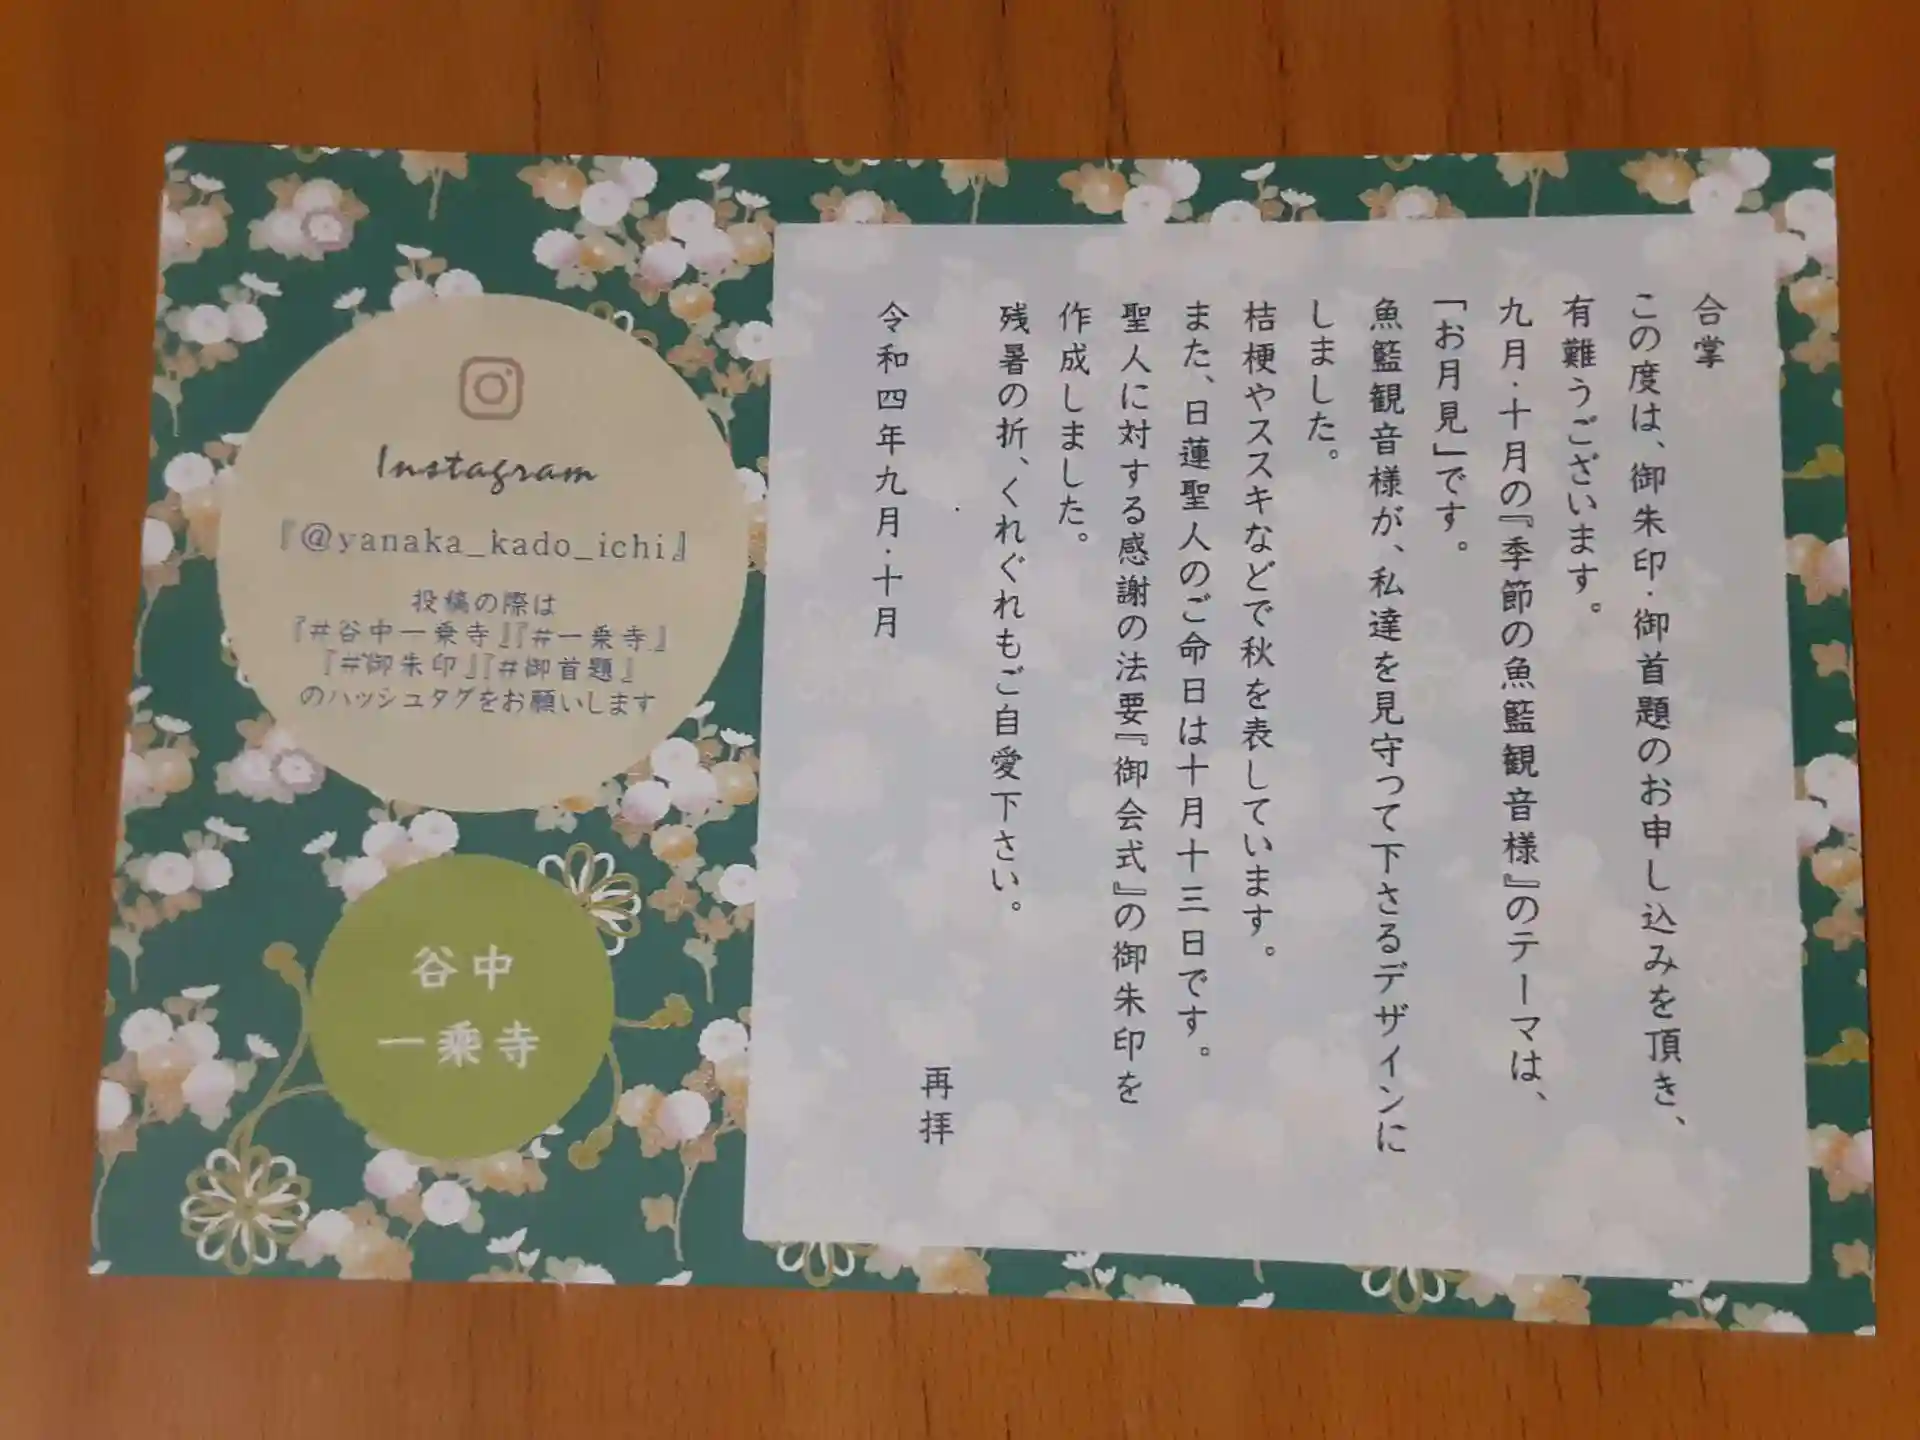 合掌
この度は、御朱印・御首題のお申し込みを頂き、
有難うございます。
九月・十月の『季節の魚籃観音様』のテーマは、
「お月見」です。
魚籃観音様が、私達を見守って下さるデザインに
しました。
桔梗やススキなどで秋を表しています。
また、日蓮聖人のご命日は十月十三日です。
聖人に対する感謝の法要『御会式』の御朱印を
作成しました。
残暑の折、くれぐれもご自愛下さい。
再拝
令和四年九月・十月
Instagram
『@yanaka_kado_ichi』
投稿の際は
『#谷中一乗寺』『#一乗寺』
『#御朱印』『#御首題』
のハッシュタグをお願いします
谷中
一乗寺